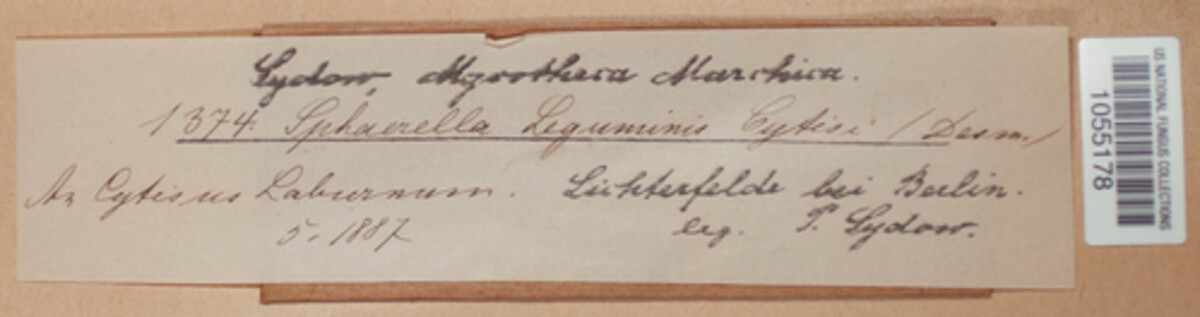 Sydow, Mycotheca Marchica.
1374. Sphaerella Leguminis Cytisi (Desm.)
An Cytisus Laburnum. Lichterfelde bei Berlin.
5. 1887 leg. P. Sydow.
US NATIONAL FUNGUS COLLECTIONS
1055178